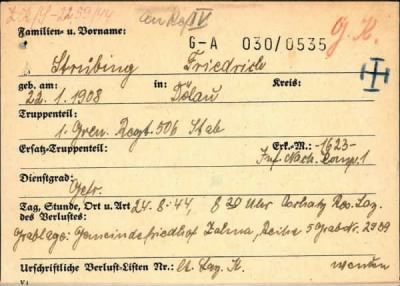 Z.Z./S-2259/44 an Ref IV
Familien- u. Vorname: G.K.
G-A 030/0535
Strübing Friedrich
geb. am: in: Kreis:
22.1.1908 Dölau
Truppenteil:
1. Gren. Regt. 506 Stab
Ersatz-Truppenteil: Erk.-M.: -1623-
Inf. Nach. Komp. 1
Dienstgrad:
Gefr.
Tag, Stunde, Ort u. Art 24.8.44, 8 20 Uhr Res. Laz.
des Verlustes:
Grablage: Gemeindefriedhof Reihe 5 Grab Nr. 2939
Urschriftliche Verlust-Listen Nr.: lt. Laz. K.